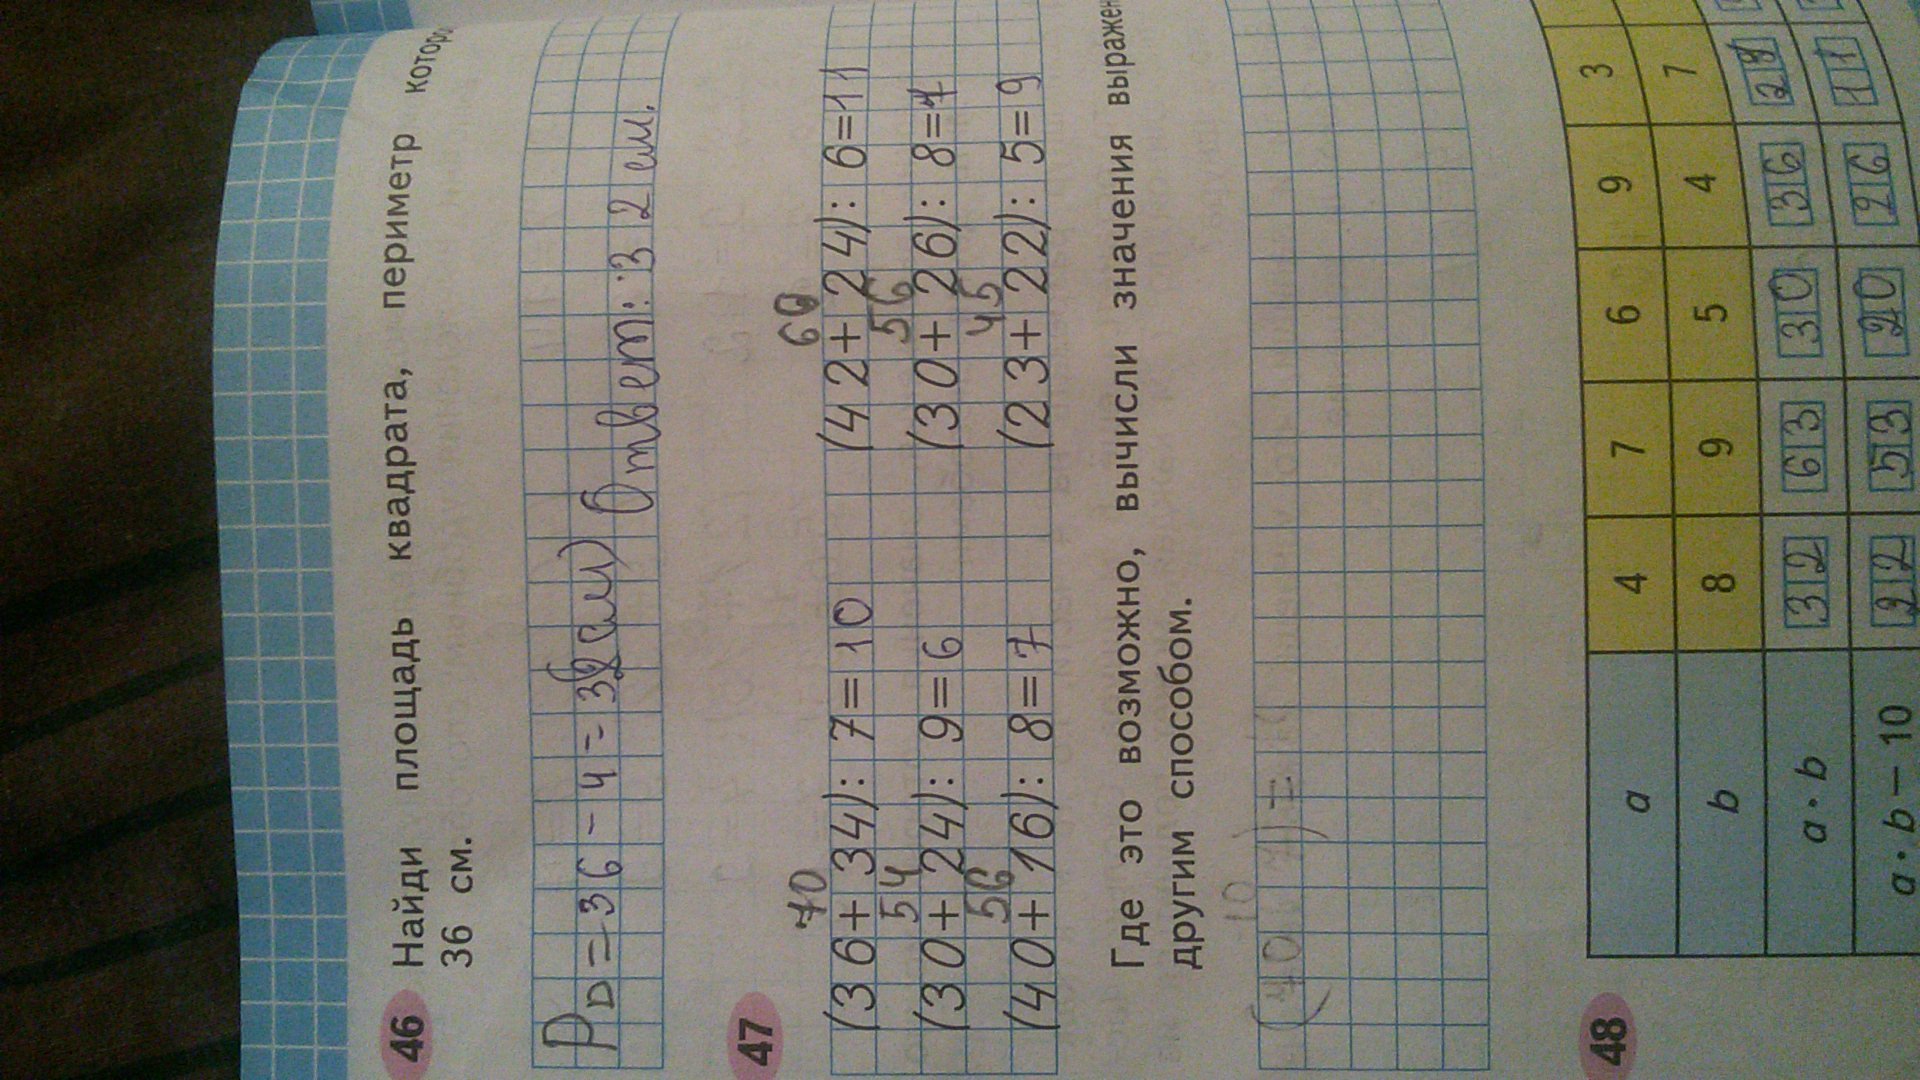 46 Найди площадь квадрата, периметр
36 см.
P□ = 36 - 4 = 32 (см) Ответ: 32 см.
47
70 60
(36+34):7=10 (42+24):6=11
54 56
(30+24):9=6 (30+26):8=7
56 45
(40+16):8=7 (23+22):5=9
Где это возможно, вычисли значения
другим способом.
48
a 4 7 6 9 3
b 8 9 5 4 7
a · b 32 63 30 36 21
a · b − 10 22 53 20 26 11